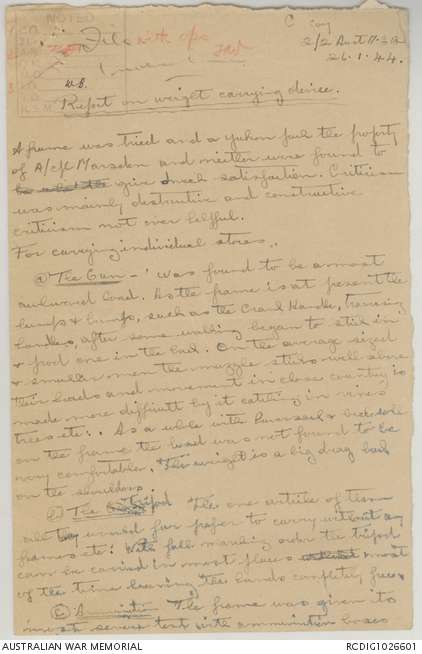 NOTED
File with ops
C Coy
2/2 Aust M.G. Bn
26.1.44.
W.E.
Report on weight carrying device.
A frame was tried and a yukon pack the property
of A/Cpl Marsden and neither were found to
give much satisfaction. Criticism
was mainly destructive and constructive
criticism not over helpful.
For carrying individual stores.
① The Gun - was found to be a most
awkward load. As the frame is at present the
lumps & bumps, such as the Crank Handle, Traversing
handles after some walking began to stick in
& prod one in the back. On the average sized
& smaller men the muzzle sticks well above
their heads and movement in close country is
made more difficult by it catching in vines
trees etc. As a whole with haversack & bedroll
on the frame the load was not found to be
very comfortable. The weight is a big drag back
on the shoulders.
② The tripod The one article of them
all they would far prefer to carry without any
frames etc. With full marching order the tripod
can be carried in most places most
of the time leaving the hands completely free.
③ Ammunition The frame was given its
most severe test with ammunition boxes
AUSTRALIAN WAR MEMORIAL
RCDIG1026601